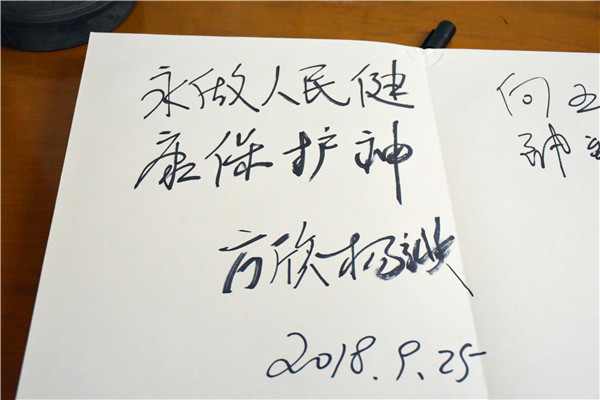 永做人民健
康保护神
方欣 杨
2018.9.25
向